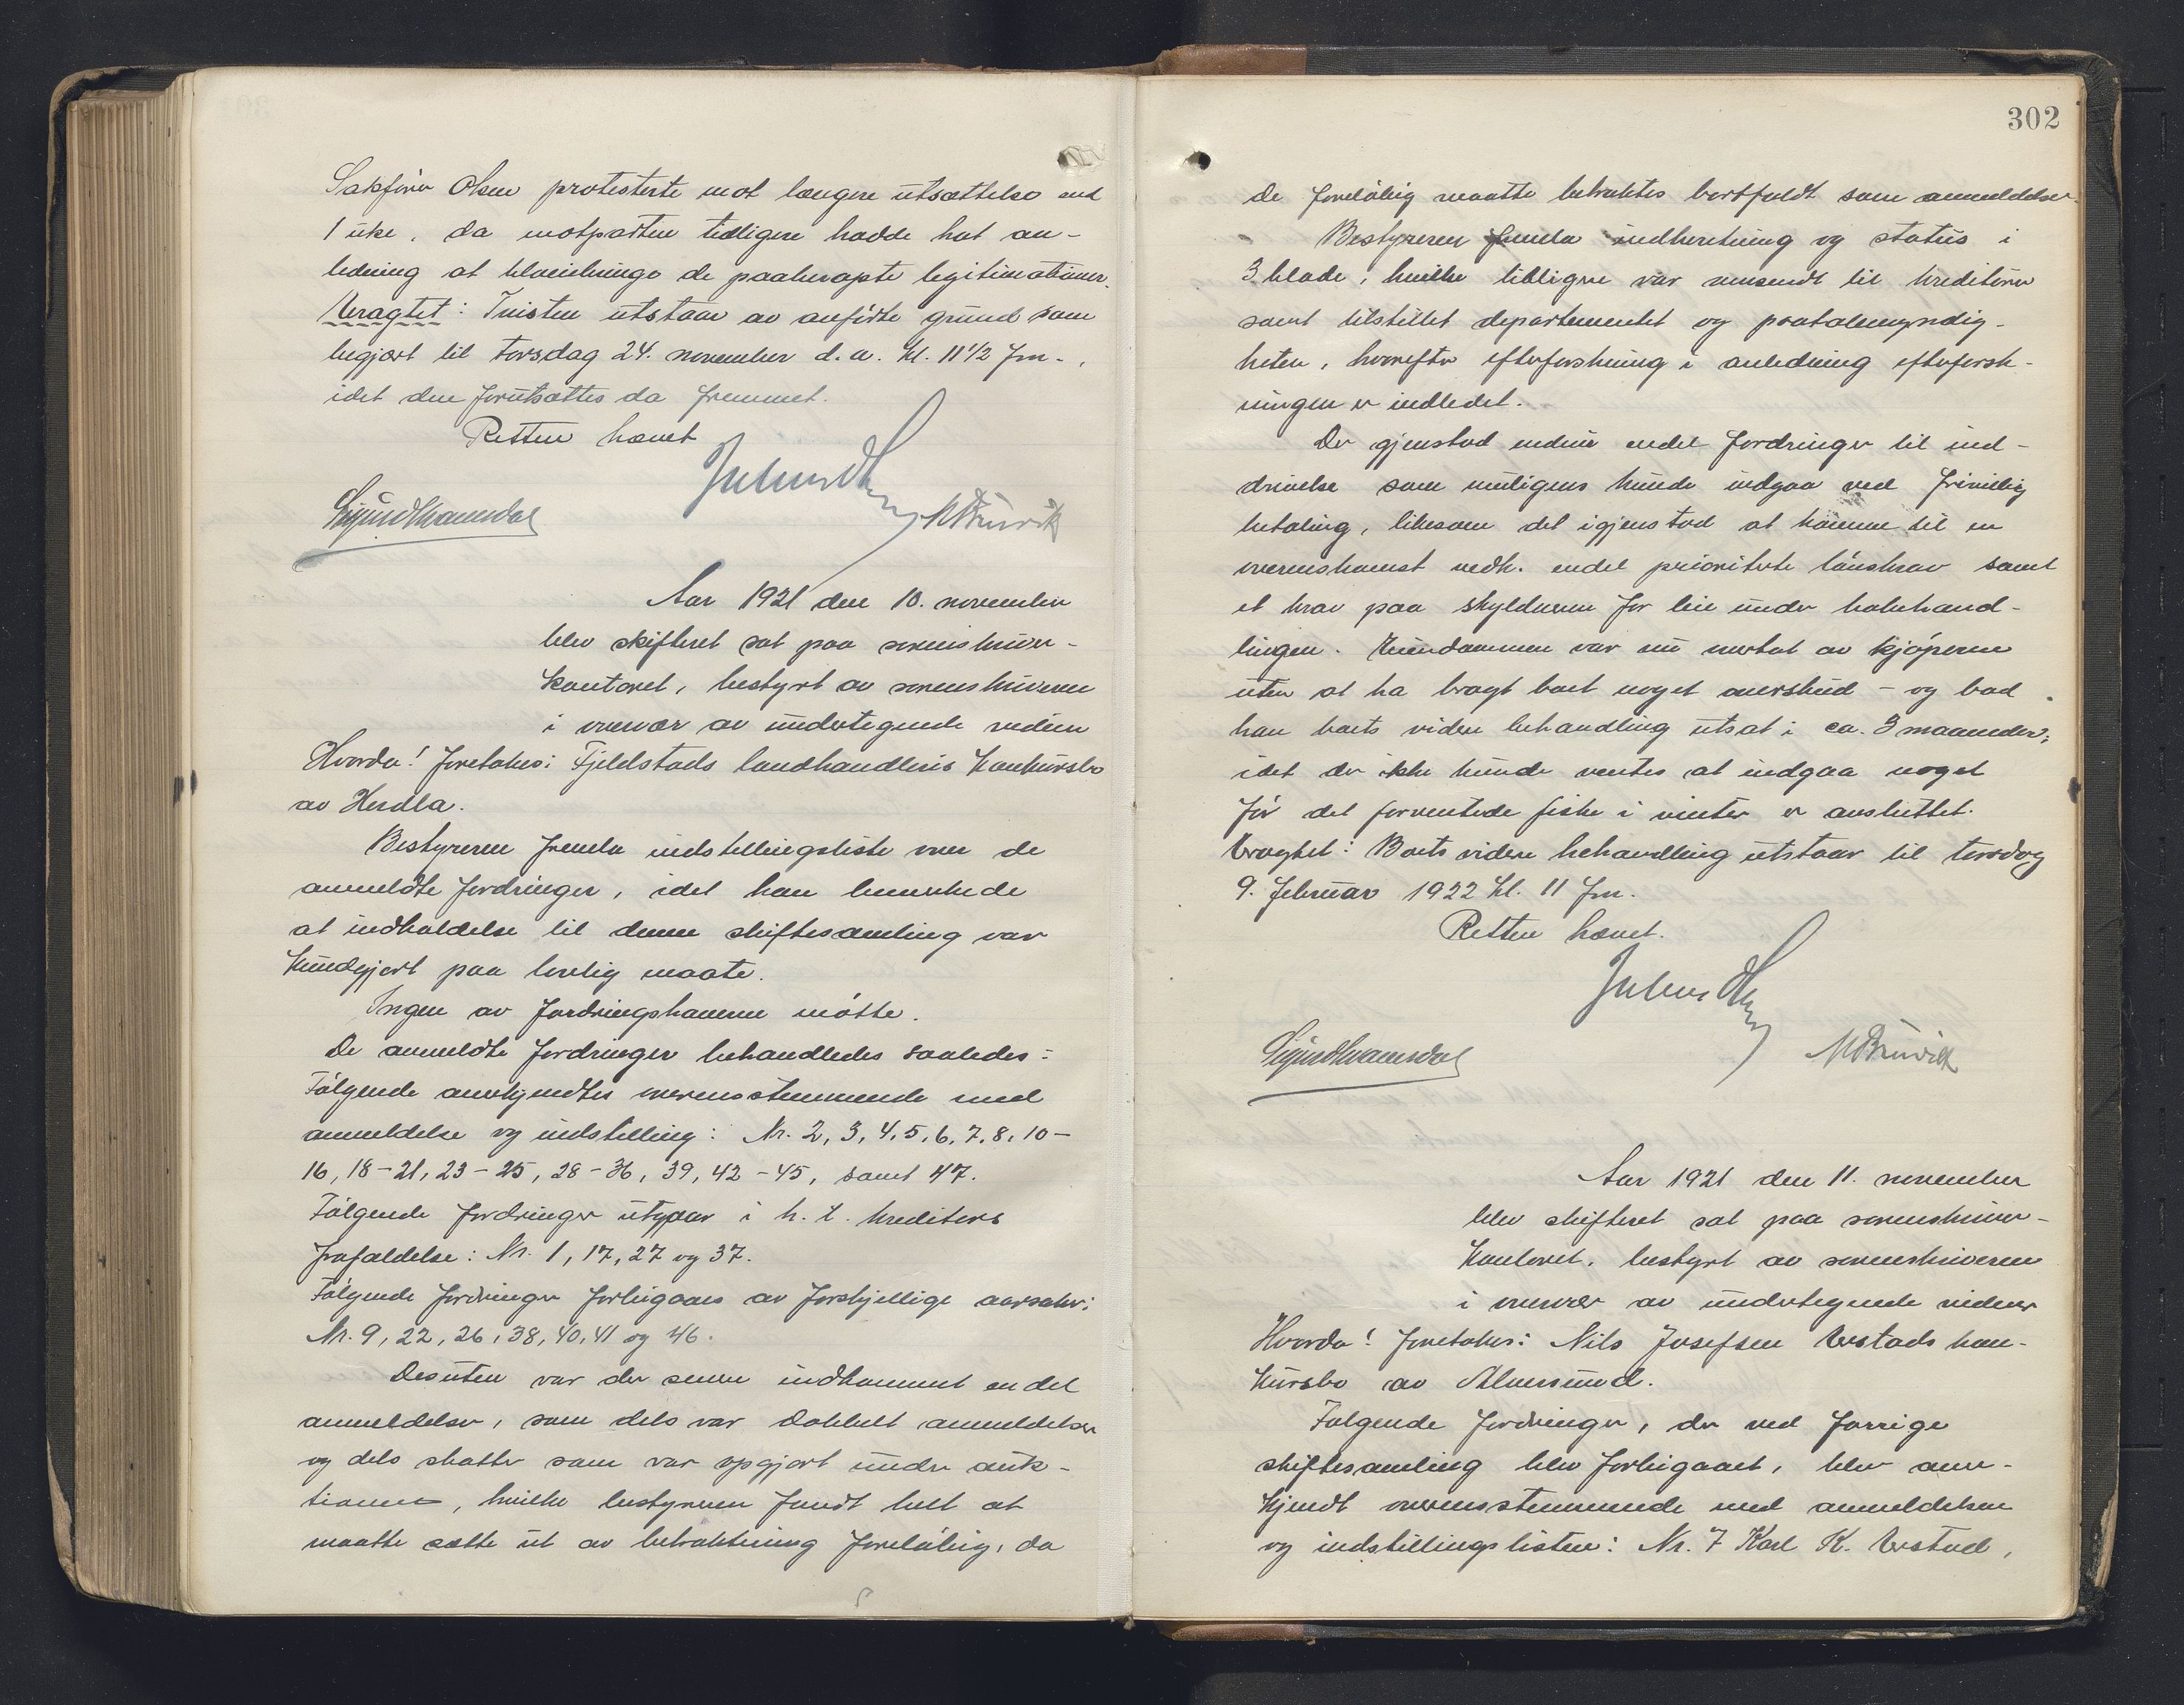 Sakfører Olsen protesterte mot længere utsættelse end
1 uke, da motparten tidligere hadde hat an-
ledning at tilveiebringe de paaberopte legitimationer.
Eragtet: Tvisten utstaar av anførte grund som
begjært til torsdag 24. november d.a. kl. 11 1/2 fm.,
idet den forutsættes da fremmet.
Retten hævet
Sigurd Kvamsdal
M Bruvik
Aar 1921 den 10. november
blev skifteret sat paa sorenskriver-
kontoret, bestyrt av sorenskriveren
i overvær av undertegnede vidner
Hvorda! foretokes: Fjeldstads landhandleris konkursbo
av Herdla.
Bestyreren fremla indstillingsliste over de
anmeldte fordringer, idet han bemerkede
at indkaldelse til denne skiftesamling var
kundgjort paa lovlig maate.
Ingen av fordringshaverne møtte.
De anmeldte fordringer behandledes saaledes:
Følgende anerkjendtes overensstemmende med
anmeldelse og indstilling: Nr. 2, 3, 4, 5, 6, 7, 8, 10-
16, 18-21, 23-25, 28-36, 39, 42-45, samt 47.
Følgende fordringer utgaar i h. t. kreditors
frafaldelse: Nr. 1, 17, 27 og 37.
Følgende fordringer forbigaaes av forskjellige aarsaker:
Nr. 9, 22, 26, 38, 40, 41 og 46.
Desuten var der senere indkommet en del
anmeldelser, som dels var dobbelt anmeldelser
og dels skatter som var opgjort under auk-
tionen, hvilke bestyreren fandt helt at
maatte sætte ut av betraktning foreløbig, da
302
de foreløbig maatte betraktes bortfaldt som anmeldelser.
Bestyreren fremla indberetning og status i
3 blade, hvilke tidligere var utsendt til kreditorer
samt tilstillet departementet og paatalemyndig-
heten, hvorefter efterforskning i anledning efterforsk-
ningen er indledet.
Der gjenstod endnu endel fordringer til ind-
drivelse som muligens kunde indgaa ved frivillig
betaling, likesom det igjenstod at komme til en
overenskomst vedk. endel prioriterte lønskrav samt
et krav paa skyldneren for leie under bobehand-
lingen. Eiendommen var nu overtat av kjøperen
uten at ha bragt boet noget overskud - og bad
han boets videre behandling utsat i ca. 3 maaneder,
idet der ikke kunde ventes at indgaa noget
før det forventede fiske i vinter er avsluttet.
Eragtet: Boets videre behandling utstaar til torsdag
9. februar 1922 kl. 11 fm.
Retten hævet.
Sigurd Kvamsdal
M Bruvik
Aar 1921 den 11. november
blev skifteret sat paa sorenskriver-
kontoret, bestyrt av sorenskriveren
i overvær av undertegnede vidner
Hvorda! foretokes: Nils Josefsen Erstads kon-
kursbo av Alversund.
Følgende fordringer, der ved forrige
skiftesamling blev forbigaaet, blev aner-
kjendt overensstemmende med anmeldelsen
og indstillingslisten: Nr. 7 Karl K. Erstad,